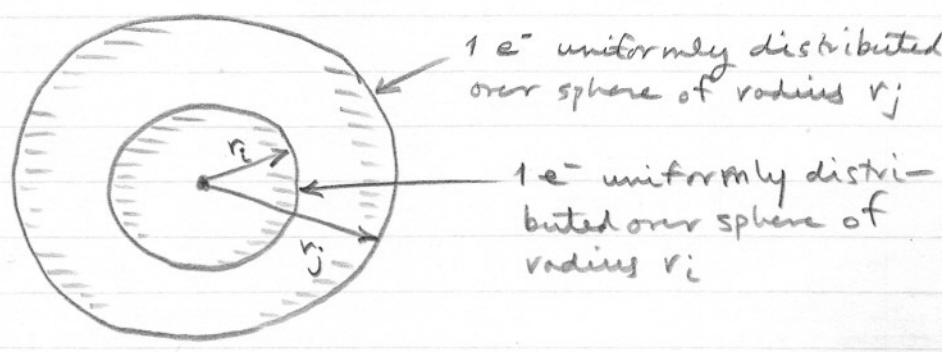 1 e⁻ uniformly distributed
over sphere of radius rj
ri
1 e⁻ uniformly distri-
buted over sphere of
radius ri
rj